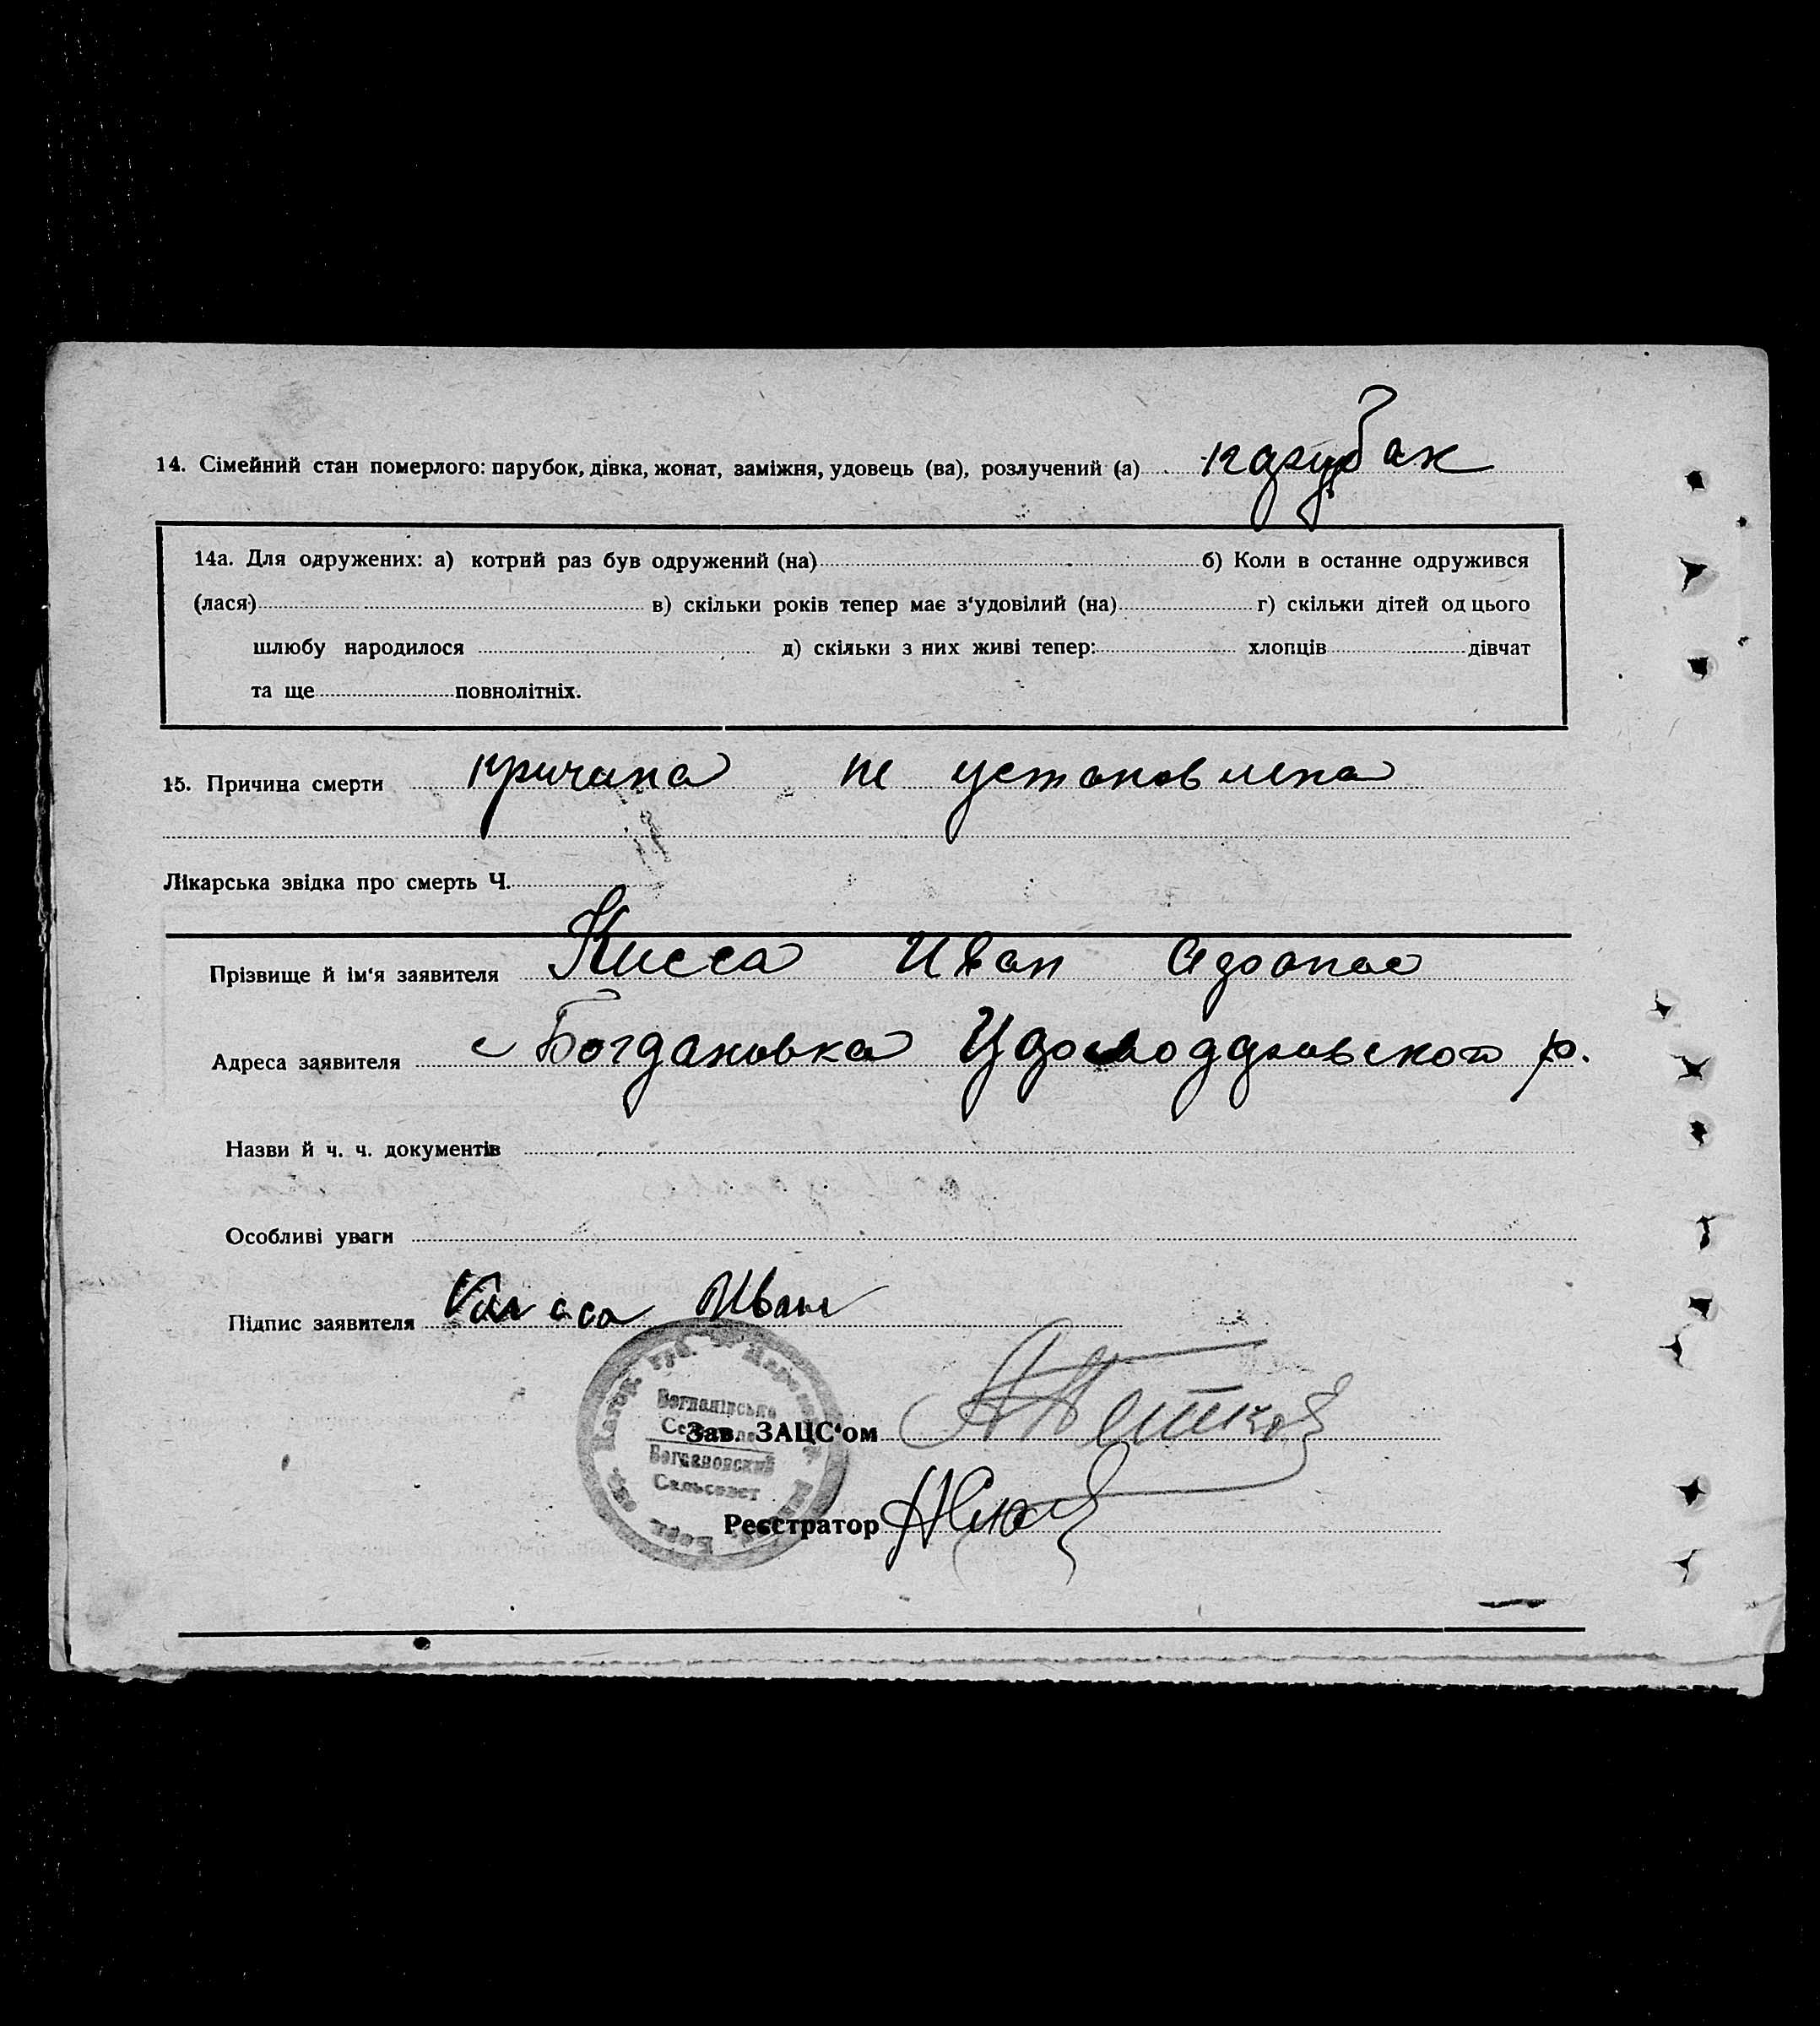 14. Сімейний стан померлого: парубок, дівка, жонат, заміжня, удовець (ва), розлучений (а) парубак
14а. Для одружених: а) котрий раз був одружений (на) б) Коли в останне одружився
(лася) в) скільки років тепер має з'удовілий (на) г) скільки дітей од цього
шлюбу народилося д) скільки з них живі тепер: хлопців дівчат
та ще повнолітніх.
15. Причина смерти причина не установлена
Лікарська звідка про смерть Ч.
Прізвище й ім'я заявителя Кисса Иван
Адреса заявителя с Богдановка р.
Назви й ч. ч. документів
Особливі уваги
Підпис заявителя Кисса Иван
Богданівсько
Зав. ЗАЦС'ом
Богдановский
Сельсовет
Реєстратор